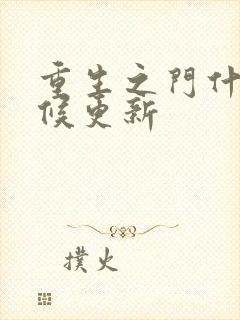 重生之門什
候更新
撲火